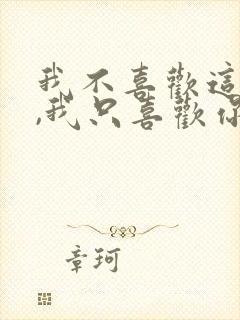 我不喜歡這
,我只喜歡你
章珂